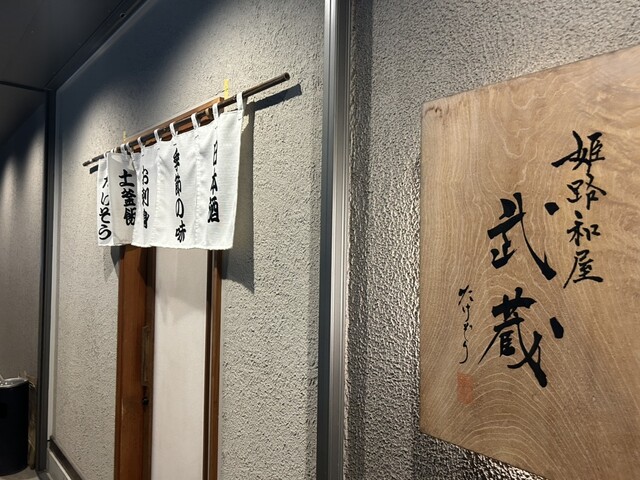 日本酒
季節の味
お刺身
土釜飯
たけぞう
姫路和屋
武蔵
たけぞう